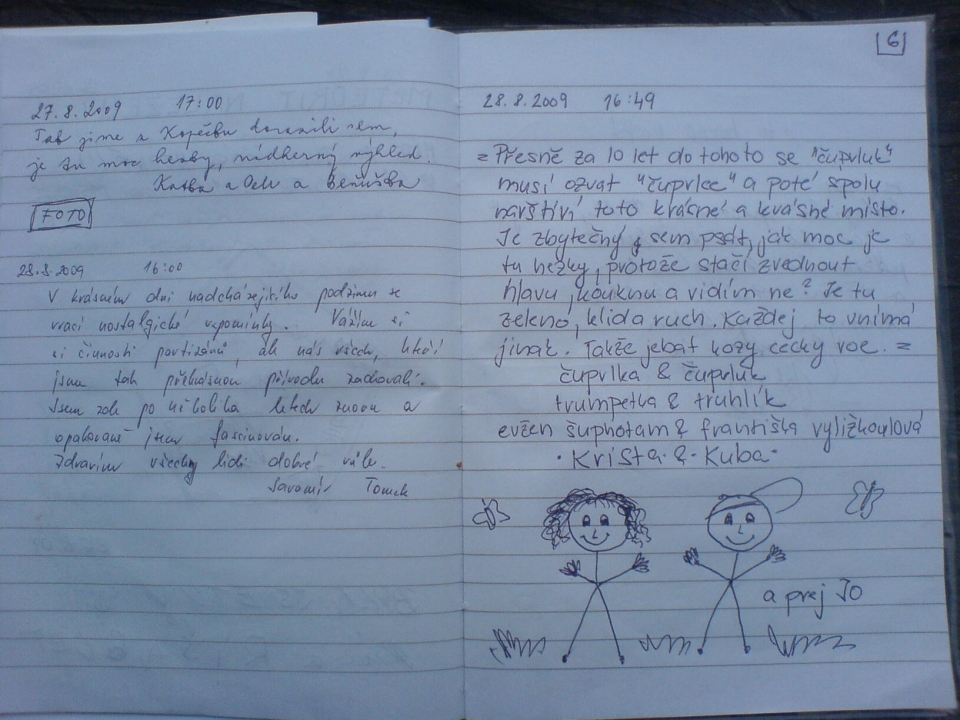 27.8.2009 17:00
Tak jsme z Kopečku dorazili sem,
je tu moc hezky, nádherný výhled.
Katka a a Benuška
FOTO
28.8.2009 16:00
V krásném dni nadcházejícího podzimu se
vrací nostalgické vzpomínky. Vážím si
si činnosti partizánů, ale nás všech, kteří
jsme tak překrásnou přírodu zachovali.
Jsem zde po několika letech znovu a
opakovaně jsem fascinován.
Zdravím všechny lidi dobré vůle.
Tomek
6
28.8.2009 16:49
= Přesně za 10 let do tohoto se "čuprluk"
musí ozvat "čuprlce" a poté spolu
navštíví toto krásné a kvásné místo.
Je zbytečný sem psát, jak moc je
tu hezky, protože stačí zvednout
hlavu, kouknu a vidím ne? Je tu
zeleno, klid a ruch. Každej to vnímá
jinak. Takže jebat kozy cecky voe. =
čuprlka & čuprluk
trumpetka & truhlík
evžen šuphotam & františka vyližkoulová
· Krista · & · Kuba ·
a prej Jo